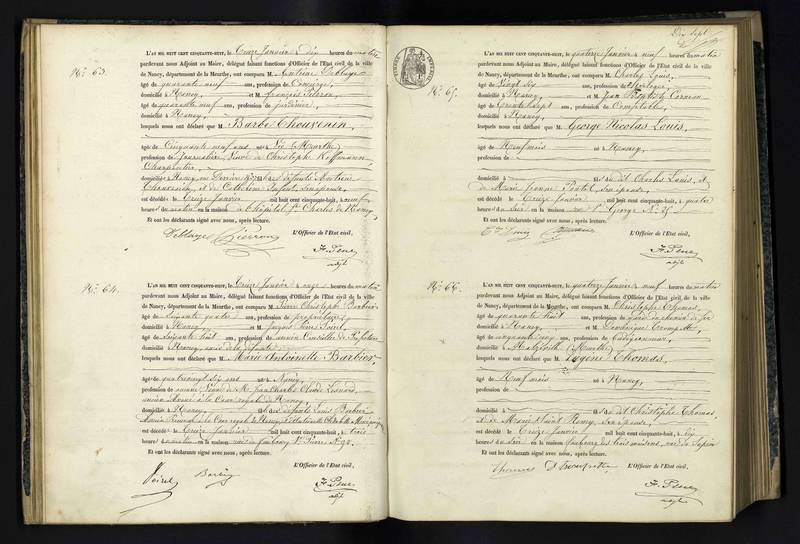 N.° 63.
L'AN MIL HUIT CENT CINQUANTE-HUIT, le treize Janvier à dix heures du matin
pardevant nous Adjoint au Maire, délégué faisant fonctions d'Officier de l'Etat civil de la ville
de Nancy, département de la Meurthe, ont comparu M. Antoine Deblaye
âgé de quarante neuf ans, profession de Concierge,
domicilié à Nancy, et M. françois Pierron
âgé de quarante neuf ans, profession de jardinier,
domicilié à Nancy,
lesquels nous ont déclaré que M. Barbe Thouvenin,
âgé de Cinquante neuf ans né à Vic (Meurthe)
profession de Journalière, Veuve de Christophe Hoffmann,
Charpentier,
domicilié à Nancy, défunts
Thouvenin, et de Catherine son épouse,
est décédé le treize Janvier mil huit cent cinquante-huit, à neuf
heures du matin en la maison à l'hôpital St. Charles de Nancy,
Et ont les déclarants signé avec nous, après lecture.
L'Officier de l'Etat civil,
Deblaye Pierron
adjt
N.° 64.
L'AN MIL HUIT CENT CINQUANTE-HUIT, le treize Janvier à onze heures du matin
pardevant nous Adjoint au Maire, délégué faisant fonctions d'Officier de l'Etat civil de la ville
de Nancy, département de la Meurthe, ont comparu M. Pierre Christophe Barbier
âgé de soixante quatre ans, profession de propriétaire,
domicilié à Nancy, et M. Jacques
âgé de soixante huit ans, profession de ancien Conseiller de Préfecture
domicilié à Nancy,
lesquels nous ont déclaré que M. Marie Antoinette Barbier,
âgé de quatre vingt dix ans né à Nancy,
profession de Veuve de M. Jean Charles Claude
ancien Avoué à la Cour royale de Nancy,
domicilié à Nancy, défunts Louis Barbier
à la Cour royale de Nancy,
est décédé le treize Janvier mil huit cent cinquante-huit, à trois
heures du matin en la maison faubourg St. Pierre N.° 90.
Et ont les déclarants signé avec nous, après lecture.
L'Officier de l'Etat civil,
Barbier
adjt
Dix sept
N.° 65.
L'AN MIL HUIT CENT CINQUANTE-HUIT, le quatorze Janvier à neuf heures du matin
pardevant nous Adjoint au Maire, délégué faisant fonctions d'Officier de l'Etat civil de la ville
de Nancy, département de la Meurthe, ont comparu M. Charles Louis,
âgé de Vingt six ans, profession de horloger,
domicilié à Nancy, et M. Jean Baptiste
âgé de trente sept ans, profession de Comptable,
domicilié à Nancy,
lesquels nous ont déclaré que M. George Nicolas Louis,
âgé de Neuf mois né à Nancy,
profession de
domicilié à fils du dit Charles Louis, et
de Marie Jeanne son épouse,
est décédé le treize Janvier mil huit cent cinquante-huit, à quatre
heures du soir en la maison rue St. George N.°
Et ont les déclarants signé avec nous, après lecture.
L'Officier de l'Etat civil,
adjt
N.° 66.
L'AN MIL HUIT CENT CINQUANTE-HUIT, le quatorze Janvier à neuf heures du matin
pardevant nous Adjoint au Maire, délégué faisant fonctions d'Officier de l'Etat civil de la ville
de Nancy, département de la Meurthe, ont comparu M. Christophe Thomas,
âgé de quarante huit ans, profession de garde au chemin de fer
domicilié à Nancy, et M. Dominique Trompette,
âgé de cinquante cinq ans, profession de Cabaretier
domicilié à (Meurthe)
lesquels nous ont déclaré que M. Eugène Thomas,
âgé de Neuf mois né à Nancy,
profession de
domicilié à fils du dit Christophe Thomas,
et de Marie son épouse,
est décédé le treize Janvier mil huit cent cinquante-huit, à six
heures du soir en la maison faubourg des trois maisons, rue du Sapin
Et ont les déclarants signé avec nous, après lecture.
L'Officier de l'Etat civil,
Thomas D Trompette
adjt